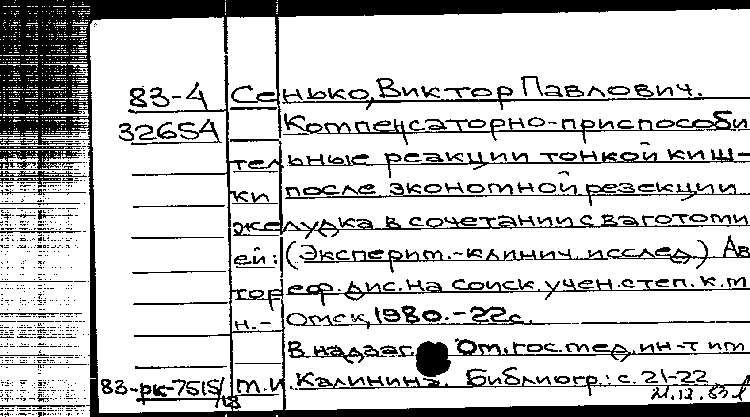 83-4 Сенько, Виктор Павлович.
3265А Компенсаторно-приспособи
тельные реакции тонкой киш-
ки после экономной резекции
желудка в сочетании с ваготоми
ей: (Эксперим.-клинич. исслед.) Ав
тореф. дис. на соиск. учен. степ. к. м.
н. - Омск, 1980. - 22с.
В надзаг. Ом. гос. мед. ин-т им
83-рк-7515/18 М.И. Калинина. Библиогр.: с. 21-22